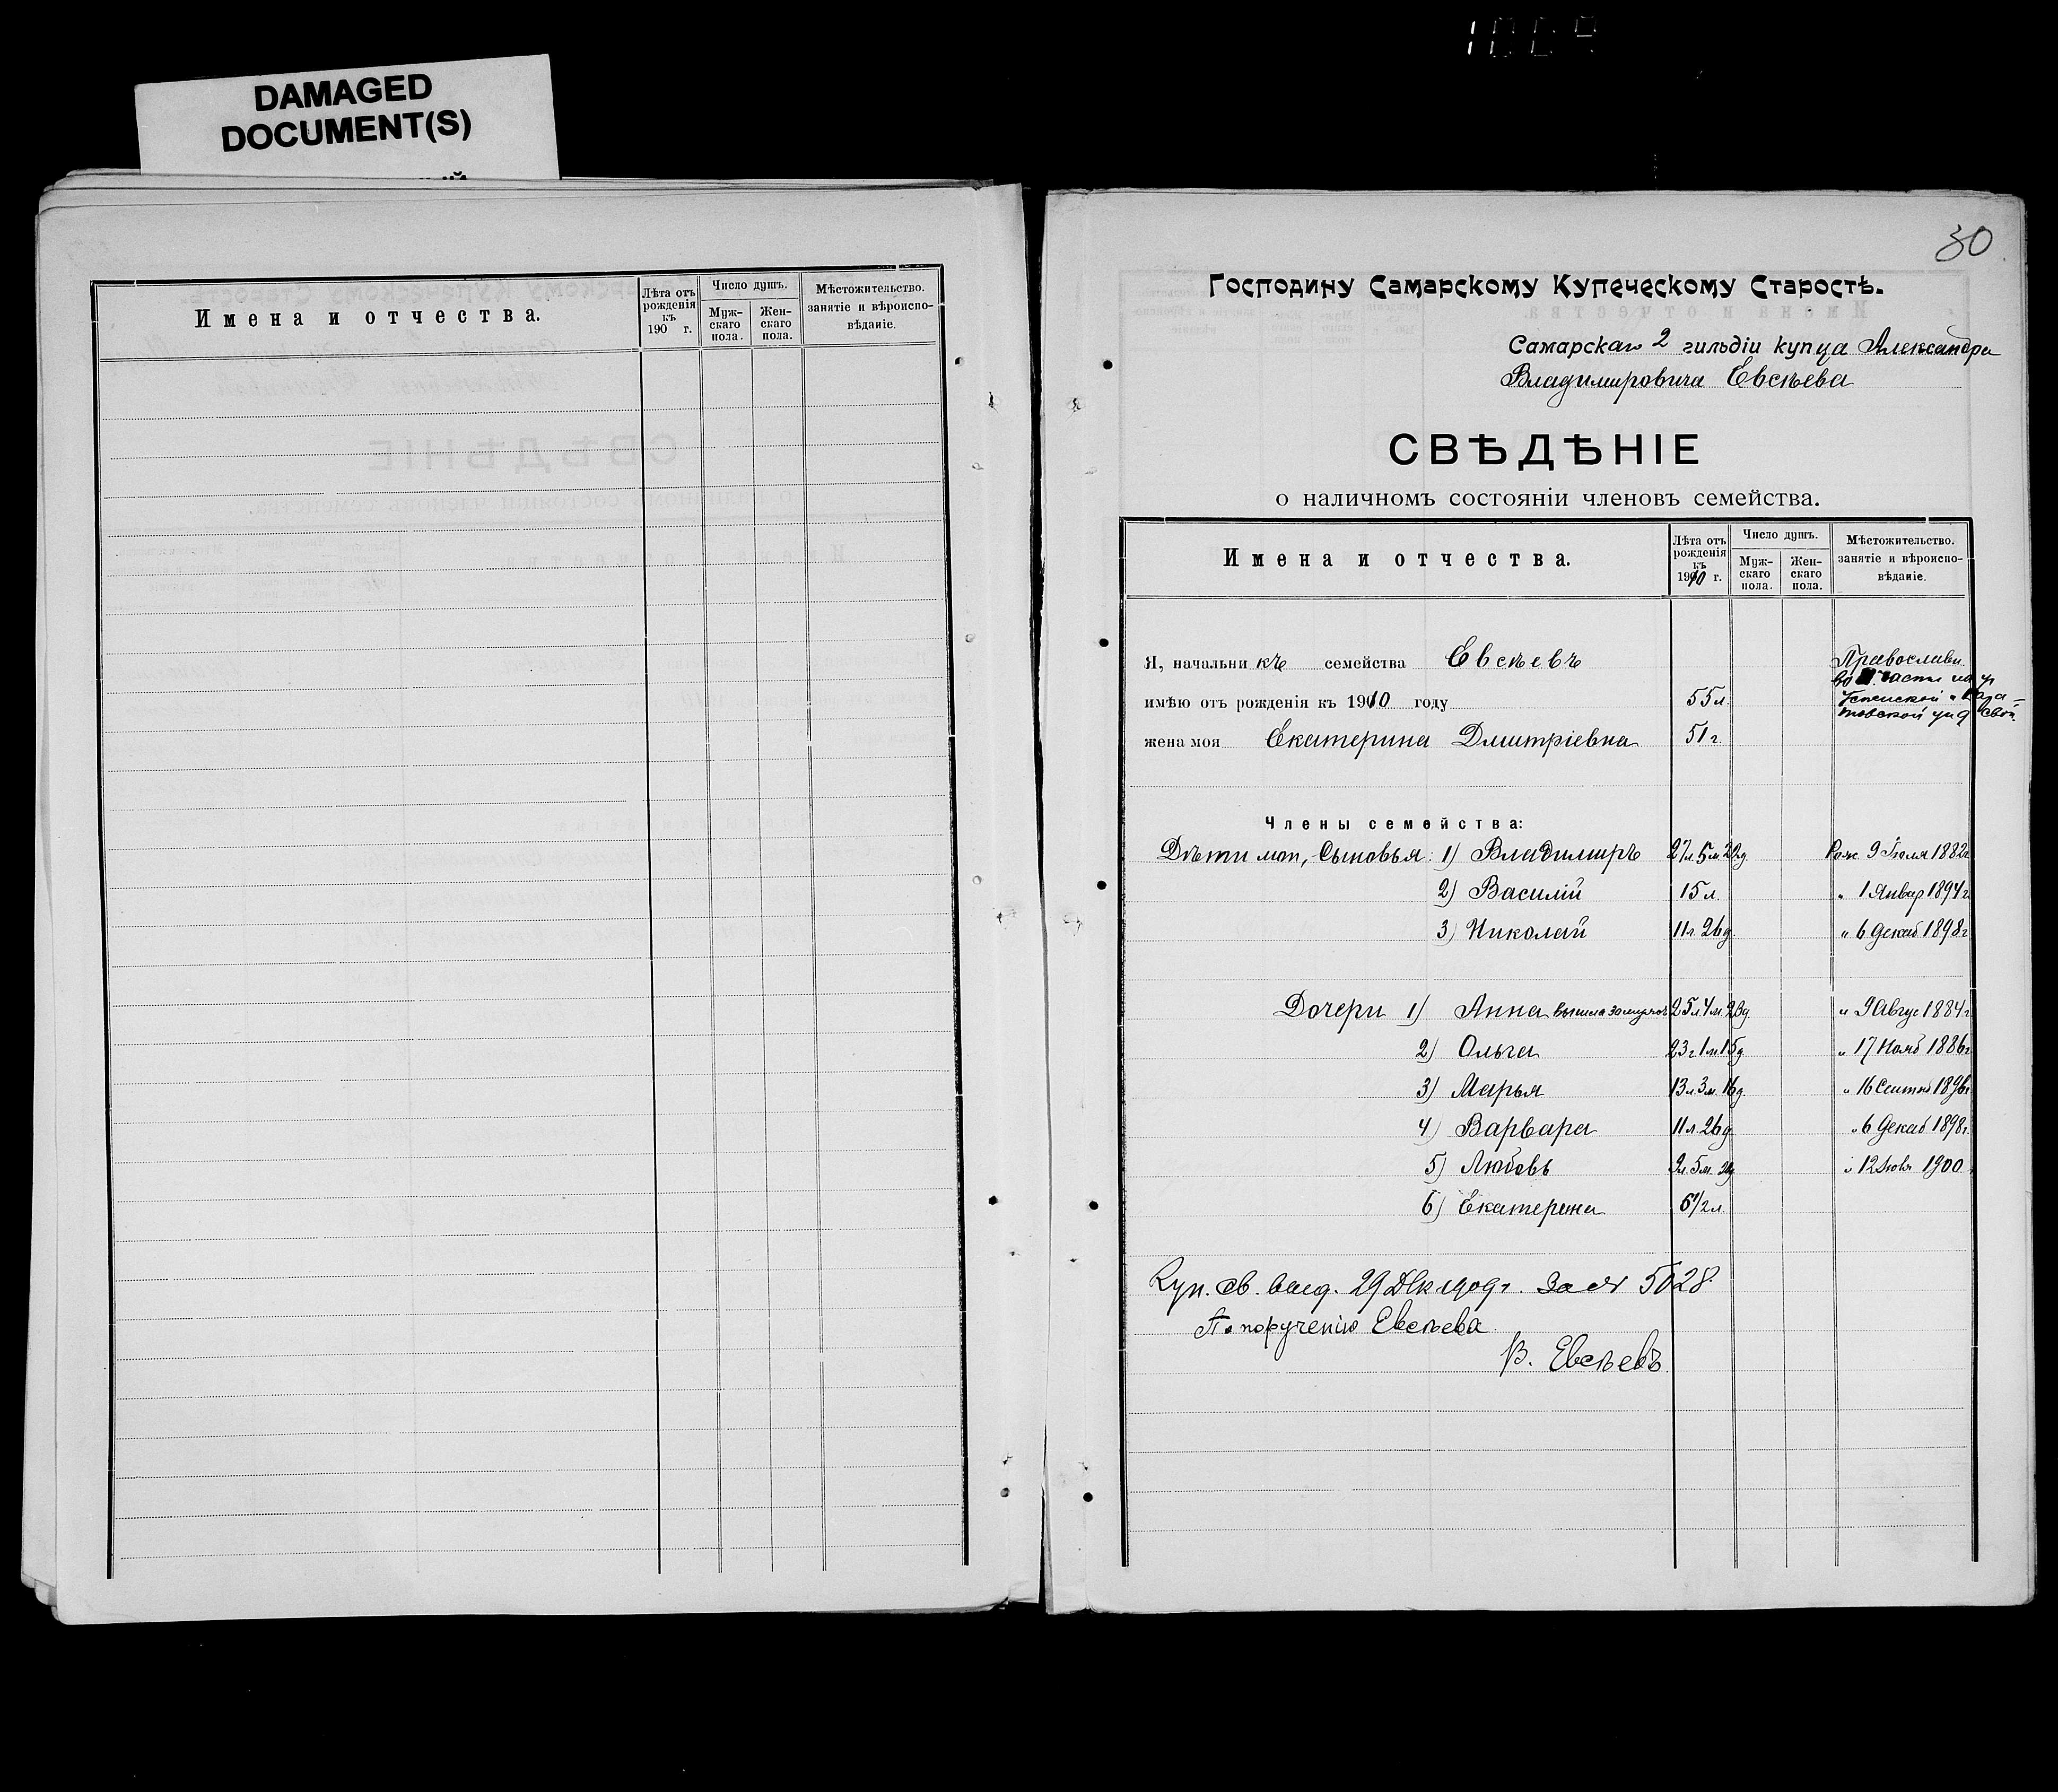 1009
DAMAGED
DOCUMENT(S)
Имена и отчества.
Лѣта отъ рожденія къ 190 г.
Число душъ.
Муж-скаго пола.
Жен-скаго пола.
Мѣстожительство. занятіе и вѣроиспо-вѣданіе.
30
Господину Самарскому Купеческому Старостѣ.
Самарскаго 2 гильдіи купца Александра
Владимировича Евсѣева
СВѢДѢНІЕ
о наличномъ состояніи членовъ семейства.
Имена и отчества.
Лѣта отъ рожденія къ 1910 г.
Число душъ.
Муж-скаго пола.
Жен-скаго пола.
Мѣстожительство. занятіе и вѣроиспо-вѣданіе.
Я, начальникъ семейства Евсѣевъ Православн.
во части на уг
имѣю отъ рожденія къ 1910 году 55 л. Успенской и Каза-
жена моя Екатерина Дмитріевна 51 г.
Члены семейства:
Дѣти мои, Сыновья: 1) Владимиръ 27 л. 5 м. 22 д Рож. 9 Іюля 1882 г
2) Василій 15 л. " 1 Январ 1894 г
3) Николай 11 л. 26 д. " 6 Декаб 1898 г
Дочери 1) Анна вышла замужъ 25 л. 4 м. 23 д " 9 Авгус 1884 г
2) Ольга 23 г 1 м. 15 д " 17 Нояб 1886 г
3) Марья 13 л. 3 м. 16 д " 16 Сентяб 1896 г
4) Варвара 11 л. 26 д " 6 Декаб 1898 г.
5) Любовь 9 л. 5 м. д " 12 1900
6) Екатерина 6 1/2 л.
Куп. св. выд. 29 Дек 1909 г. за № 5028.
По порученію Евсѣева
В. Евсѣевъ